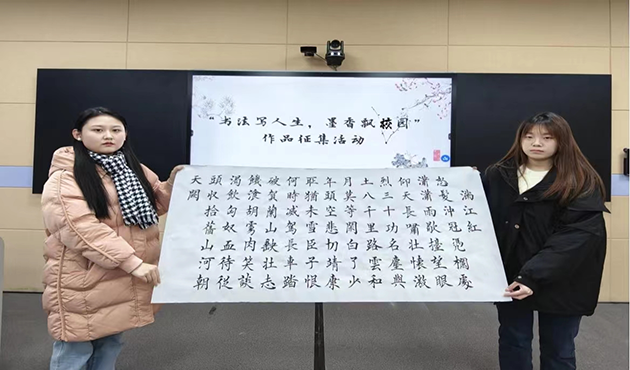 “书法写人生，墨香飘校园”
作品征集活动
滿江紅
怒髮沖冠凭欄處
瀟瀟雨歇擡望眼
仰天長嘯壯懷激
烈三十功名塵與
土八千里路雲和
月莫等閒白了少
年頭空悲切靖康
恥猶未雪臣子恨
何時滅駕長車踏
破賀蘭山缺壯志
饑飡胡虜肉笑談
渴飲匈奴血待從
頭收拾舊山河朝
天闕